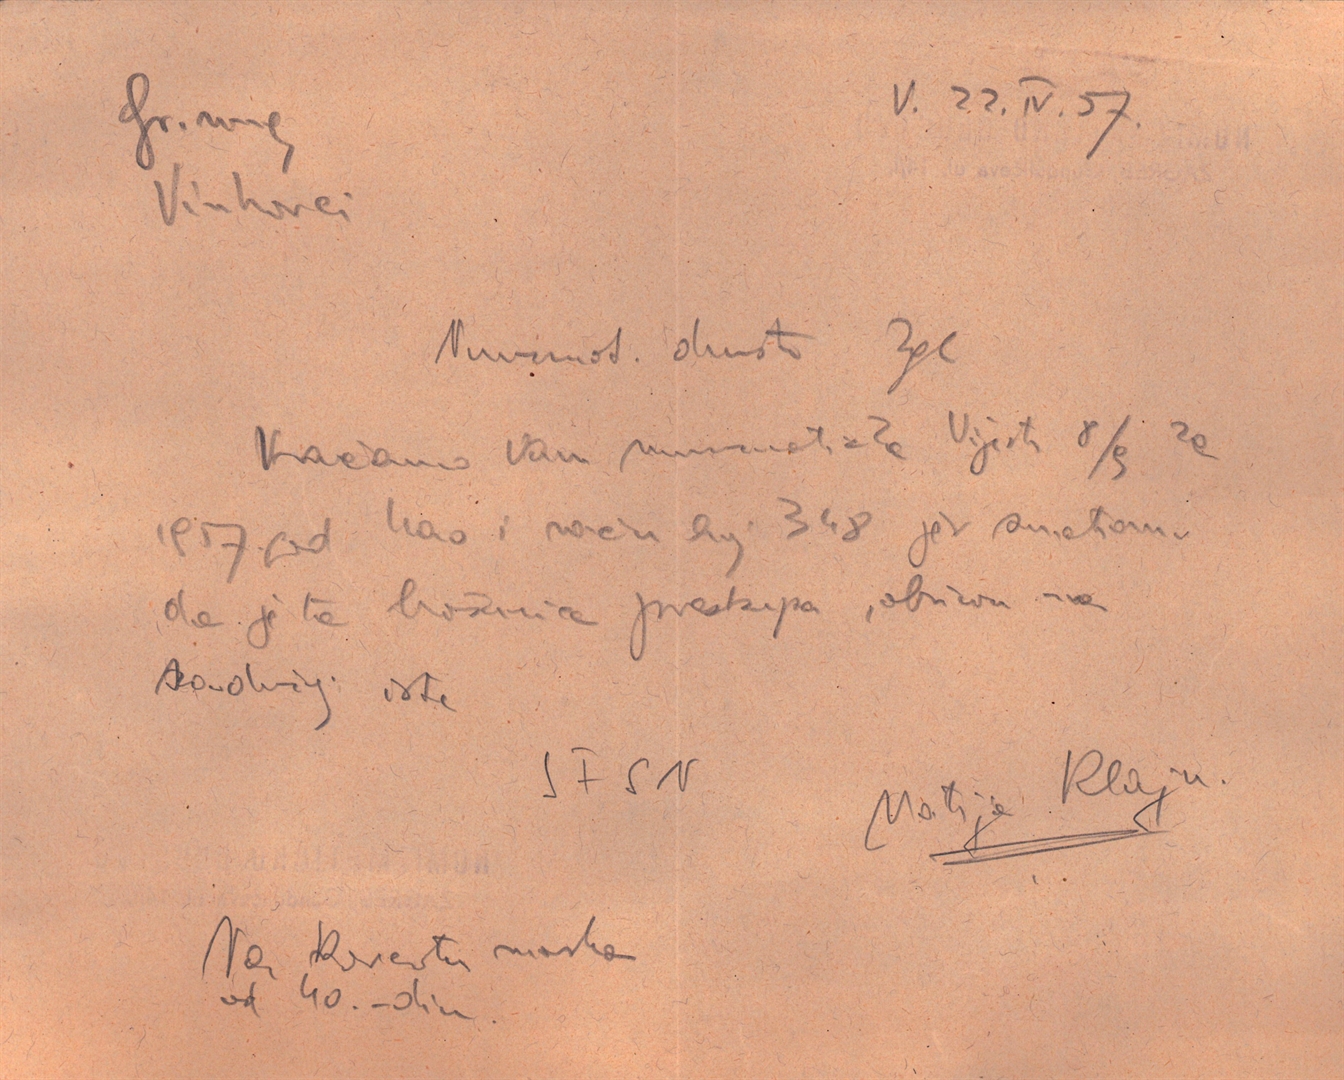 Gr. muz
V. 22. IV. 57.
Vinkovci
Numizmat. društo Zgb
Vraćamo Vam numizmatičke Vijesti 8/9 za
1957. god kao i račun br. 348 jer smatramo
da je ta knjižnica preskupa, obzirom na
sadržaj iste
SFSN
Matija Klajn.
Na kovertu marka
od 40.-din.